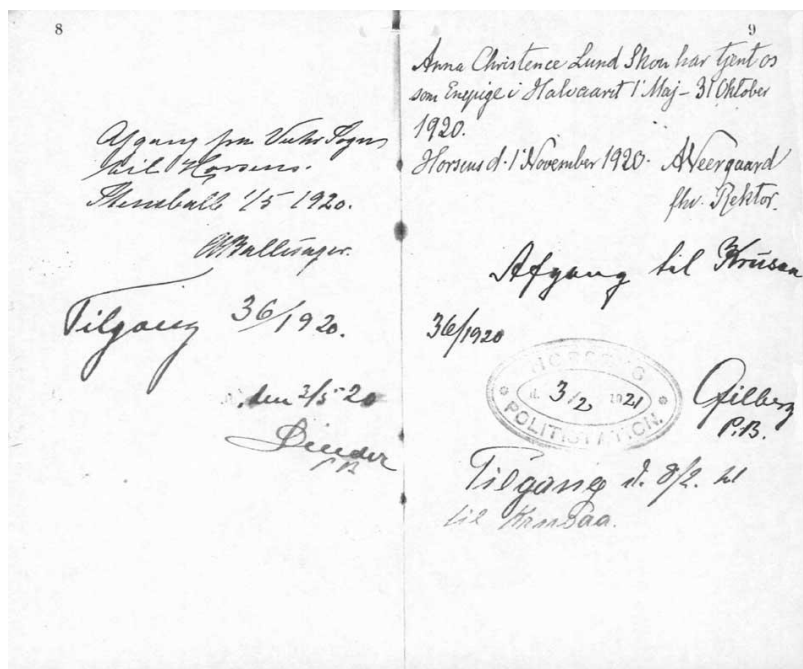 8
Afgang fra Vær Sogn
til Horsens.
Stensballe 1/5 1920.
Tilgang 36/1920.
den 3/5 20
P.B.
9
Anna Christence Lund Skou har tjent os
som Enepige i Halvaaret 1' Maj - 31' Oktober
1920.
Horsens d. 1' November 1920. A Neergaard
fhv. Rektor.
Afgang til Krusaa
36/1920
HORSENS
d. 3/2 1921
POLITISTATION.
Gilberg
P.B.
Tilgang d. 8/2. 21
til Krusaa.